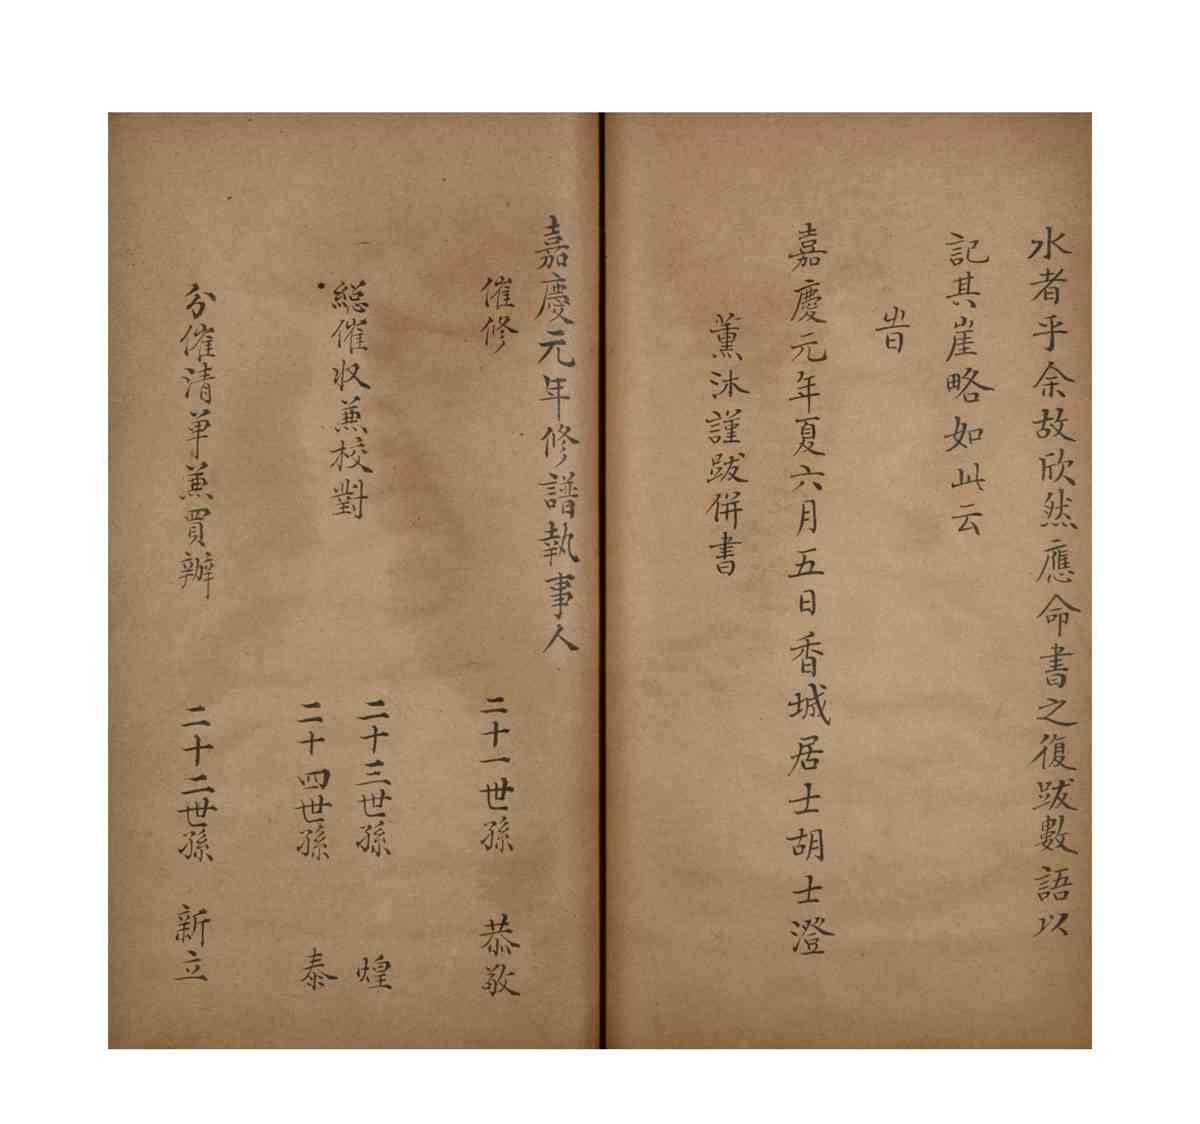 水者乎余故欣然應命書之復跋數語以
記其崖略如此云
旹
嘉慶元年夏六月五日香城居士胡士澄
薰沐謹跋併書
嘉慶元年修譜執事人
催修 二十一世孫 恭敬
総催収兼校對 二十三世孫 煌
二十四世孫 泰
分催清单兼買辦 二十二世孫 新立